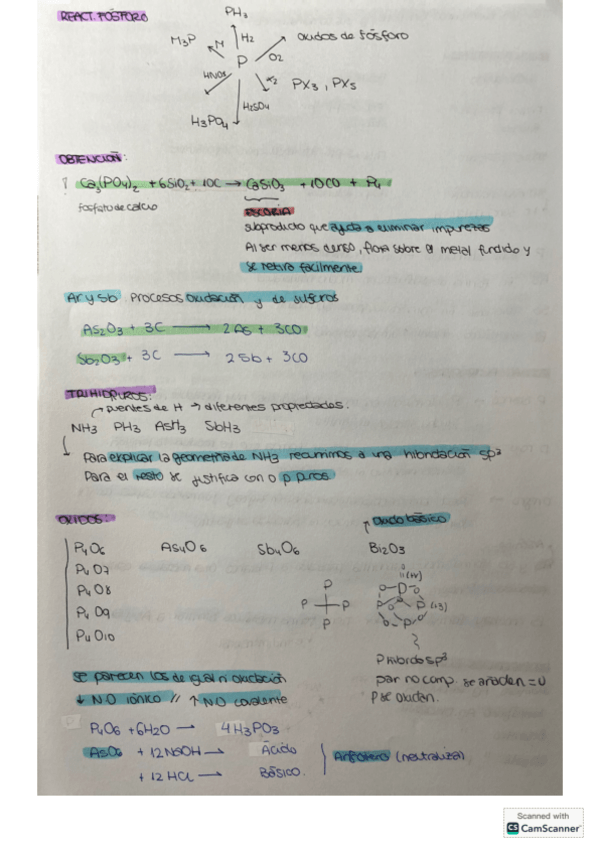 REACT. FÓSFORO
PH3
M3P M H2 óxidos de fósforo
P O2
HNO3 X2 PX3, PX5
H2SO4
H3PO4
OBTENCIÓN:
Ca3(PO4)2 + 6SiO2 + 10C → CaSiO3 + 10CO + P4
fosfato de calcio ESCORIA
subproducto que ayuda a eliminar impurezas
Al ser menos denso, flota sobre el metal fundido y
se retira fácilmente
As y Sb Procesos oxidación y de sulfuros
As2O3 + 3C → 2As + 3CO
Sb2O3 + 3C → 2Sb + 3CO
TRIHIDRUROS:
puentes de H → diferentes propiedades.
NH3 PH3 AsH3 SbH3
Para explicar la geometría de NH3 recurrimos a una hibridación sp3
Para el resto se justifica con o p puros
ÓXIDOS: óxido básico
P4O6 As4O6 Sb4O6 Bi2O3
P4O7
P4O8
P4O9
P4O10
P P P P
O O P O P O P
P híbrido sp3
par no comp. se añaden = O
P se oxidan.
Se parecen los de igual n oxidación
↓ NO iónico // ↑ NO covalente
P4O6 + 6H2O → 4H3PO3
As4O6 + 12NaOH → Ácido
+ 12 HCl → Básico.
Anfótero (neutraliza)
Scanned with
CS CamScanner